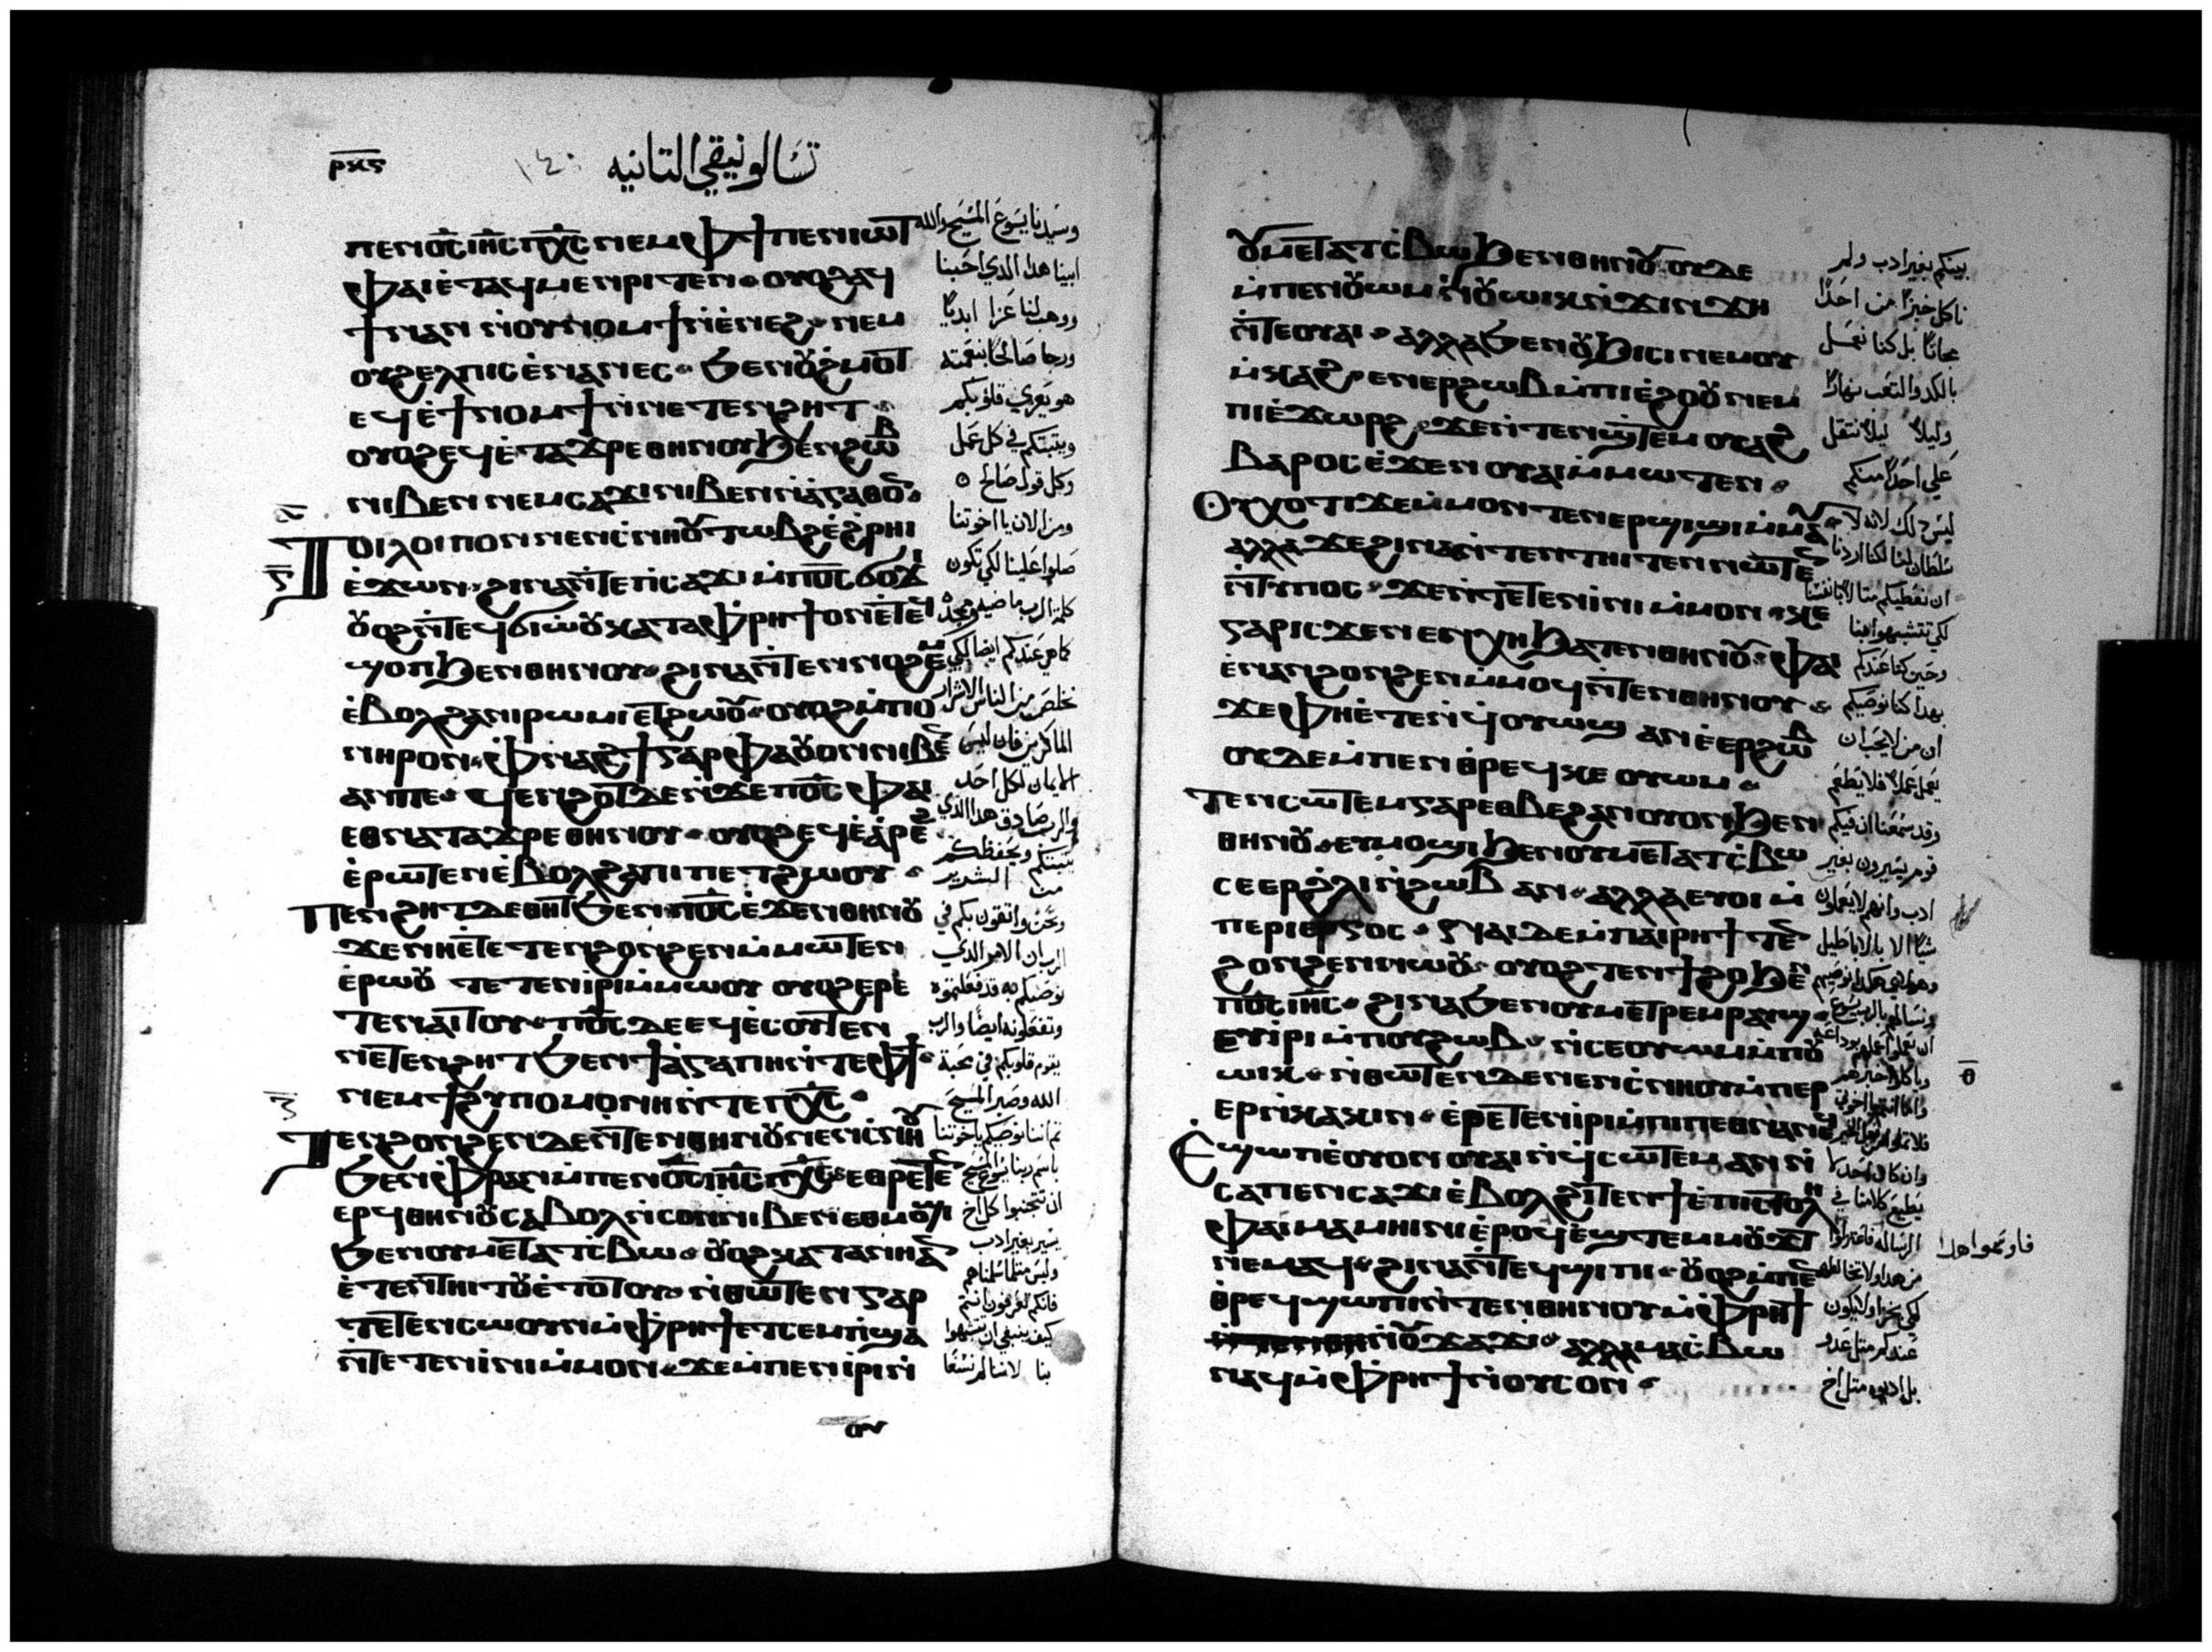 ⲣϥⲋ
تسالونيقي الثانيه
ⲡⲉⲛⲟ̅ⲥ̅ ⲓⲏ̅ⲥ̅ ⲡⲭ̅ⲥ̅ ⲛⲉⲙ ⲫϯ ⲡⲉⲛⲓⲱⲧ
ⲫⲁⲓ ⲉ̀ⲧⲁϥⲙⲉⲛⲣⲓⲧⲉⲛ ⲟⲩⲟϩ ⲁϥ
ϯ ⲛⲁⲛ ⲛ̀ⲟⲩⲛⲟⲙϯ ⲛ̀ⲉ̀ⲛⲉϩ ⲛⲉⲙ
ⲟⲩϩⲉⲗⲡⲓⲥ ⲉ̀ⲛⲁⲛⲉⲥ ϧⲉⲛ ⲟⲩϩⲙⲟⲧ
ⲉϥⲉ̀ϯⲛⲟⲙϯ ⲛ̀ⲛⲉⲧⲉⲛϩⲏⲧ
ⲟⲩⲟϩ ⲉϥⲉ̀ⲧⲁϫⲣⲉ ⲑⲏⲛⲟⲩ ϧⲉⲛ ϩⲱⲃ
ⲛⲓⲃⲉⲛ ⲛⲉⲙ ⲥⲁϫⲓ ⲛⲓⲃⲉⲛ ⲛ̀ⲁ̀ⲅⲁⲑⲟⲛ
ⲧⲟⲓⲗⲟⲓⲡⲟⲛ ⲛⲉⲛⲥ̀ⲛⲏⲟⲩ ⲧⲱⲃϩ ⲉ̀ϩ̀ⲣⲏⲓ
ⲉ̀ϫⲱⲛ ϩⲓⲛⲁ ⲛ̀ⲧⲉ ⲡ̀ⲥⲁϫⲓ ⲙ̀ⲡⲟ̅ⲥ̅ ϭⲟϫⲓ
ⲟⲩⲟϩ ⲛ̀ⲧⲉϥϭⲓⲱ̀ⲟⲩ ⲕⲁⲧⲁ ⲫ̀ⲣⲏϯ ⲟⲛ ⲉ̀ⲧⲉϥ
ϣⲟⲡ ϧⲉⲛ ⲑⲏⲛⲟⲩ ϩⲓⲛⲁ ⲛ̀ⲧⲉⲛⲛⲟϩⲉⲙ
ⲉ̀ⲃⲟⲗϩⲁ ⲛⲓⲣⲱⲙⲓ ⲉⲧϩⲱⲟⲩ ⲟⲩⲟϩ ⲙ̀ⲡⲟ
ⲛⲏⲣⲟⲛ ⲫ̀ⲛⲁϩϯ ⲅⲁⲣ ⲫⲁ ⲟⲩⲟⲛ ⲛⲓⲃⲉⲛ
ⲁⲛ ⲡⲉ ϥⲉⲛϩⲟⲧ ⲇⲉ ⲛ̀ϫⲉ ⲡⲟ̅ⲥ̅ ⲫⲁⲓ
ⲉⲑⲛⲁⲧⲁϫⲣⲉ ⲑⲏⲛⲟⲩ ⲟⲩⲟϩ ⲉϥⲉ̀ⲁ̀ⲣⲉϩ
ⲉ̀ⲣⲱⲧⲉⲛ ⲉ̀ⲃⲟⲗϩⲁ ⲡⲓⲡⲉⲧϩⲱⲟⲩ
ⲡⲉⲛϩⲏⲧ ⲇⲉ ⲑⲏⲧ ϧⲉⲛ ⲡⲟ̅ⲥ̅ ⲉ̀ϫⲉⲛ ⲑⲏⲛⲟⲩ
ϫⲉ ⲛⲏ ⲉⲧⲉ ⲧⲉⲛϩⲟⲛϩⲉⲛ ⲙ̀ⲙⲱⲧⲉⲛ
ⲉ̀ⲣⲱⲟⲩ ⲧⲉⲧⲉⲛⲓ̀ⲣⲓ ⲙ̀ⲙⲱⲟⲩ ⲟⲩⲟϩ ⲉⲣⲉ
ⲧⲉⲛⲁⲓⲧⲟⲩ ⲡⲟ̅ⲥ̅ ⲇⲉ ⲉϥⲉ̀ⲥⲟⲩⲧⲉⲛ
ⲛⲉⲧⲉⲛϩⲏⲧ ϧⲉⲛ ϯⲁ̀ⲅⲁⲡⲏ ⲛ̀ⲧⲉ ⲫϯ
ⲛⲉⲙ ϯϩⲩⲡⲟⲙⲟⲛⲏ ⲛ̀ⲧⲉ ⲡⲭ̅ⲥ̅
ⲧⲉⲛϩⲟⲛϩⲉⲛ ⲇⲉ ⲛ̀ⲧⲉⲛ ⲑⲏⲛⲟⲩ ⲛⲉⲛⲥ̀ⲛⲏⲟⲩ
ϧⲉⲛ ⲫ̀ⲣⲁⲛ ⲙ̀ⲡⲉⲛⲟ̅ⲥ̅ ⲓⲏ̅ⲥ̅ ⲡⲭ̅ⲥ̅ ⲉⲑⲣⲉⲧⲉⲛ
ⲉⲣϥ ⲑⲏⲛⲟⲩ ⲥⲁⲃⲟⲗ ⲛ̀ⲥⲟⲛ ⲛⲓⲃⲉⲛ ⲉⲑⲙⲟϣⲓ
ϧⲉⲛ ⲟⲩⲙⲉⲧⲁⲧⲥ̀ⲃⲱ ⲟⲩⲟϩ ⲕⲁⲧⲁ ⲛⲏ ⲁⲛ
ⲉ̀ⲧⲉⲛⲧⲏⲓⲧⲟⲩ ⲉ̀ⲧⲟⲧⲟⲩ ⲛ̀ⲑⲱⲧⲉⲛ ⲅⲁⲣ
ⲧⲉⲧⲉⲛⲥⲱⲟⲩⲛ ⲙ̀ⲫ̀ⲣⲏϯ ⲉⲧⲥⲉⲙⲡ̀ϣⲁ
ⲛ̀ⲧⲉⲧⲉⲛⲓ̀ⲛⲓ ⲙ̀ⲙⲟⲛ ϫⲉ ⲙ̀ⲡⲉⲛⲓ̀ⲣⲓ ⲛ̀
وسيدنا يسوع المسيح والله
ابينا هذا الذي احبنا
ووهب لنا عزا ابديًا
ورجا صالحًا بنعمته
هو يعزي قلوبكم
ويثبتكم في كل عمل
وكل قول صالح
ومن الان يا اخوتنا
صلوا علينا لكي تكون
كما هي عندكم ايضا لكي
نخلص من الناس الاشرار
الماكرين فان ليس
الايمان لكل احد
والرب صادق هذا الذي
يثبتكم ويحفظكم
من الشرير
ونحن واثقون بكم في
الرب ان الامر الذي
نوصيكم به قد فعلتموه
وتفعلونه ايضًا والرب
يقوم قلوبكم في محبة
الله وصبر المسيح
باسم ربنا يسوع المسيح
ان تتجنبوا كل اخ
يسير بغير ادب
فانكم تعرفون انتم
كيف ينبغي ان تتشبهوا
بنا لاننا لم نسعَا
ⲟⲩⲙⲉⲧⲁⲧⲥ̀ⲃⲱ ϧⲉⲛ ⲑⲏⲛⲟⲩ ⲟⲩⲇⲉ
ⲙ̀ⲡⲉⲛⲟⲩⲱⲙ ⲛ̀ⲟⲩⲱⲓⲕ ⲛ̀ϫⲓⲛϫⲏ
ⲛ̀ⲧⲉ ⲟⲩⲁⲓ ⲁⲗⲗⲁ ϧⲉⲛ ⲟⲩϧⲓⲥⲓ ⲛⲉⲙ ⲟⲩ
ⲙ̀ⲕⲁϩ ⲉⲛⲉⲣϩⲱⲃ ⲙ̀ⲡⲓⲉ̀ϩⲟⲟⲩ ⲛⲉⲙ
ⲡⲓⲉ̀ϫⲱⲣϩ ϫⲉ ⲛ̀ⲧⲉⲛϣ̀ⲧⲉⲙ ⲟⲩⲁϩ
ⲃⲁⲣⲟⲥ ⲉ̀ϫⲉⲛ ⲟⲩⲁⲓ ⲙ̀ⲙⲱⲧⲉⲛ
ⲟⲩⲭ ⲟⲧⲓ ϫⲉ ⲙ̀ⲙⲟⲛ ⲧⲉⲛ ⲉⲣϣⲓϣⲓ ⲙ̀ⲙⲁⲩ
ⲁⲗⲗⲁ ϫⲉ ϩⲓⲛⲁ ⲛ̀ⲧⲉⲛⲧⲏⲓⲧⲉⲛ ⲛⲱⲧⲉⲛ
ⲛ̀ⲧⲩⲡⲟⲥ ϫⲉ ⲛ̀ⲧⲉⲧⲉⲛⲓ̀ⲛⲓ ⲙ̀ⲙⲟⲛ ⲕⲉ
ⲅⲁⲣ ⲓⲥϫⲉⲛ ⲉⲛⲭⲏ ϧⲁⲧⲉⲛ ⲑⲏⲛⲟⲩ ⲫⲁⲓ
ⲉ̀ⲛⲁⲛϩⲟⲛϩⲉⲛ ⲙ̀ⲙⲟϥ ⲛ̀ⲧⲉⲛ ⲑⲏⲛⲟⲩ
ϫⲉ ⲫⲏ ⲉ̀ⲧⲉⲛ̀ϥ̀ⲟⲩⲱϣ ⲁⲛ ⲉ̀ⲉⲣϩⲱⲃ
ⲟⲩⲇⲉ ⲙ̀ⲡⲉⲛⲑⲣⲉϥⲕⲉ ⲟⲩⲱⲙ
ⲧⲉⲛⲥⲱⲧⲉⲙ ⲅⲁⲣ ⲉⲑⲃⲉ ϩⲁⲛⲟⲩⲟⲛ ϧⲉⲛ
ⲑⲏⲛⲟⲩ ⲉⲩⲙⲟϣⲓ ϧⲉⲛ ⲟⲩⲙⲉⲧⲁⲧⲥ̀ⲃⲱ
ⲥⲉⲉⲣϩ̀ⲗⲓ ⲛ̀ϩⲱⲃ ⲁⲛ ⲁⲗⲗⲁ ⲉⲩⲟⲓ ⲙ̀
ⲡⲉⲣⲓⲉⲣⲅⲟⲥ ⲛⲁⲓ ⲇⲉ ⲙ̀ⲡⲁⲓⲣⲏϯ ⲧⲉⲛ
ϩⲟⲛϩⲉⲛ ⲛⲱⲟⲩ ⲟⲩⲟϩ ⲧⲉⲛϯϩⲟ ϧⲉⲛ
ⲡⲟ̅ⲥ̅ ⲓⲏ̅ⲥ̅ ϩⲓⲛⲁ ϧⲉⲛ ⲟⲩⲙⲉⲧⲣⲉⲙⲣⲁⲩϣ
ⲉⲩⲓ̀ⲣⲓ ⲙ̀ⲡⲟⲩϩⲱⲃ ⲛ̀ⲥⲉⲟⲩⲱⲙ ⲙ̀ⲡⲟⲩ
ⲱⲓⲕ ⲛ̀ⲑⲱⲧⲉⲛ ⲇⲉ ⲛⲉⲛⲥ̀ⲛⲏⲟⲩ ⲙ̀ⲡⲉⲣ
ⲉⲣⲛ̀ⲕⲁⲕⲓⲛ ⲉ̀ⲣⲉⲧⲉⲛⲓ̀ⲣⲓ ⲙ̀ⲡⲓⲡⲉⲑⲛⲁⲛⲉϥ
ⲉ̀ϣⲱⲡ ⲉ̀ⲟⲩⲟⲛ ⲟⲩⲁⲓ ⲛ̀ϥ̀ⲥⲱⲧⲉⲙ ⲁⲛ ⲛ̀
ⲥⲁ ⲡⲉⲛⲥⲁϫⲓ ⲉ̀ⲃⲟⲗϩⲓⲧⲉⲛ ϯⲉ̀ⲡⲓⲥⲧⲟⲗⲏ
ⲫⲁⲓ ⲙⲁⲙⲏⲓⲛⲓ ⲉ̀ⲣⲟϥ ⲉ̀ϣ̀ⲧⲉⲙⲙⲟⲩϫⲧ
ⲛⲉⲙⲁϥ ϩⲓⲛⲁ ⲛ̀ⲧⲉϥϣⲓⲡⲓ ⲟⲩⲟϩ ⲙ̀ⲡⲉⲛ
ⲑⲣⲉϥϣⲱⲡⲓ ⲛ̀ⲧⲉⲛ ⲑⲏⲛⲟⲩ ⲙ̀ⲫ̀ⲣⲏϯ
ⲛ̀ⲟⲩϫⲁϫⲓ ⲁⲗⲗⲁ ⲙⲁⲥ̀ⲃⲱ
ⲛⲁϥ ⲙ̀ⲫ̀ⲣⲏϯ ⲛ̀ⲟⲩⲥⲟⲛ
بينكم بغير ادب ولم
ناكل خبزًا من احدًا
مجانًا بل كنا نعمل
بالكد والتعب نهارًا
وليلًا ليلا نثقل
علي احدًا منكم
ليس ذلك لانه لا
سلطان لنا لكنا اردنا
ان نعطيكم مثالا بانفسنا
لكي تتشبهوا بنا
وحين كنا عندكم
بهذا كنا نوصيكم
ان من لا يحب ان
يعمل عملًا فلا يطعم
وقد سمعنا ان فيكم
قوم يسيرون بغير
ادب وانهم لا يعملون
شيًا الا بالاباطيل
ⲑ
وان كان احد لا
يطيع كلامنا في
عندكم مثل عدو
بل ادبوه مثل اخ